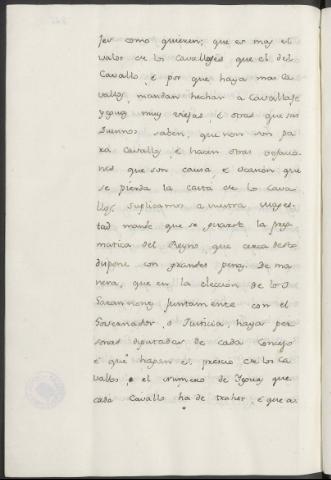 ser como quieren, que es mas el
valor de los cavallages que el del
Cavallo, é por que haya mas Ca
vallos, mandan hechar a Cavallage
yeguas muy viejas, é otras que sus
Duenos saben, que non son pa
ra Cavallos, é hacen otras
nes que son causa, é ocasion que
se pierda la casta de los Cava
llos, suplicamos a vuestra Mages-
tad mande que se guarde la pre
matica del Reyno, que cerca desto
dispone con grandes penas, de ma
nera, que en la elección de los
juntamente con el
Governador, o Justicia, haya per
sonas diputadas de cada Concejo
é que hagan el precio de los Ca
vallos, e el numero de Yeguas que
cada Cavallo ha de traher, é que as